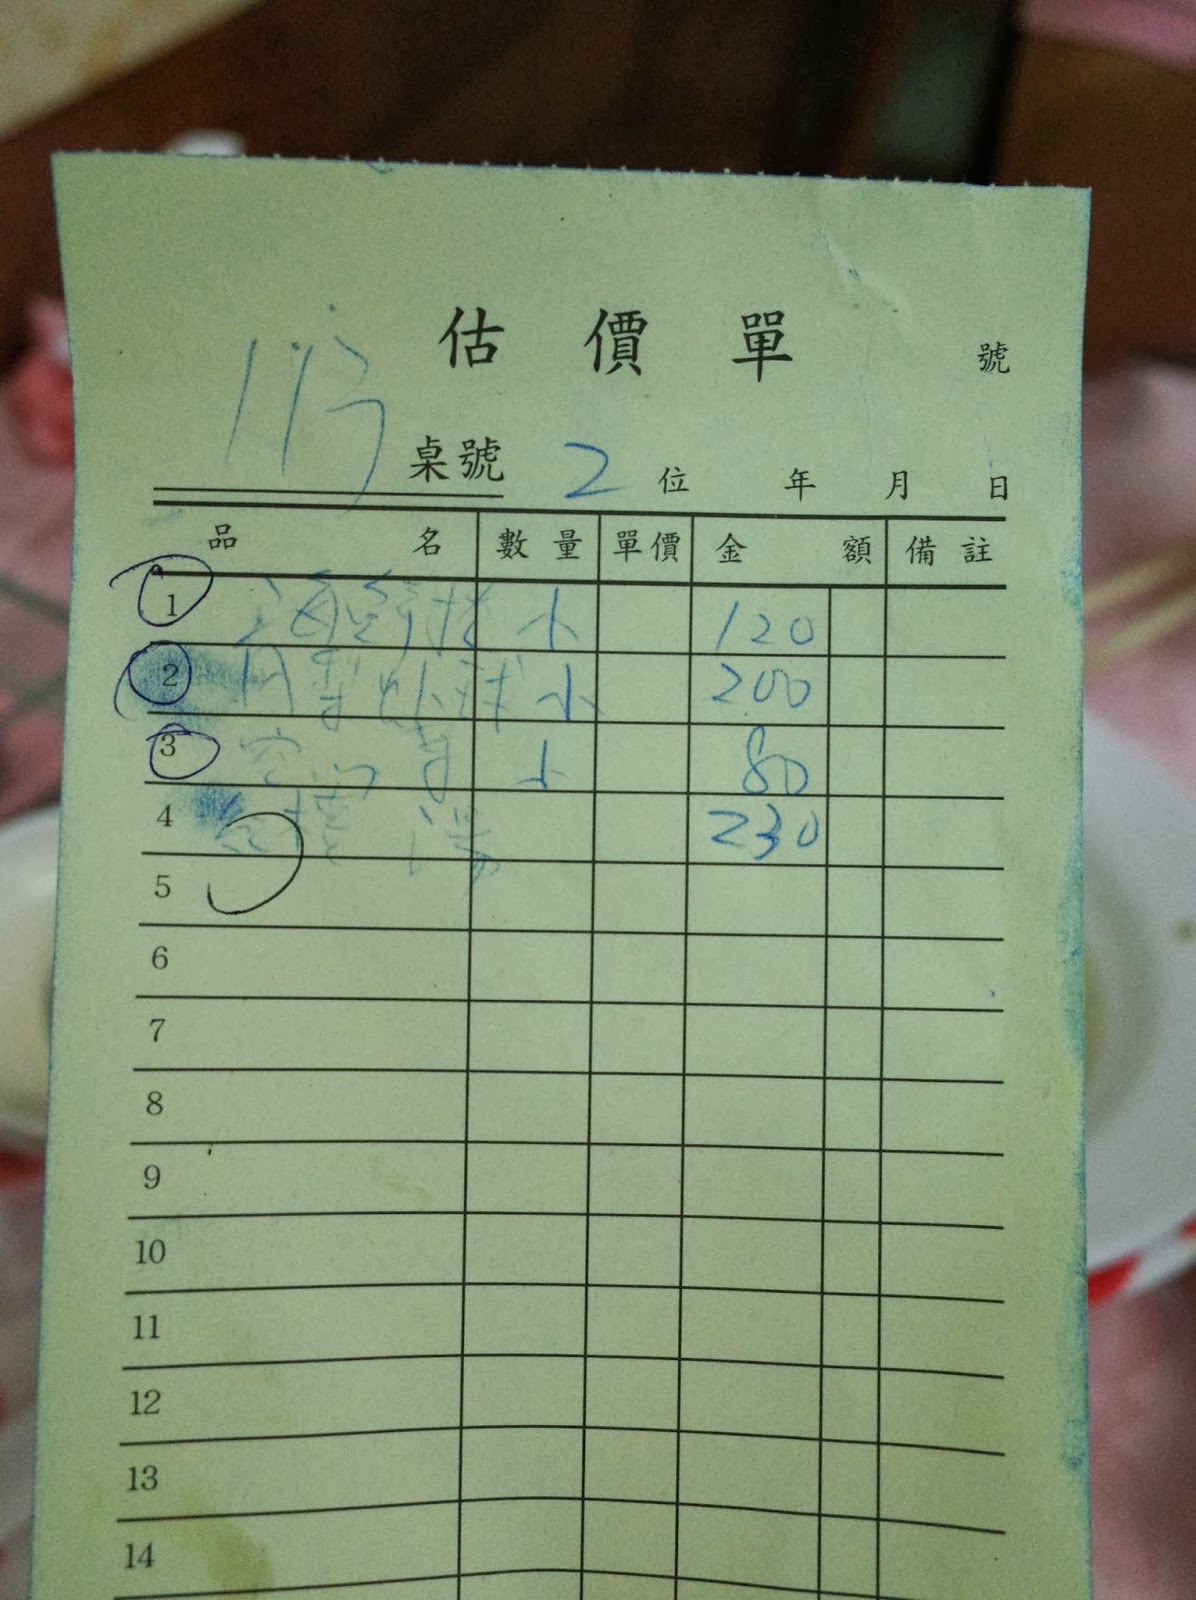 估價單 號
113 桌號 2 位 年 月 日
品名 數量 單價 金額 備註
1 小 120
2 小 200
3 空心菜 小 80
4 湯 230
5
6
7
8
9
10
11
12
13
14